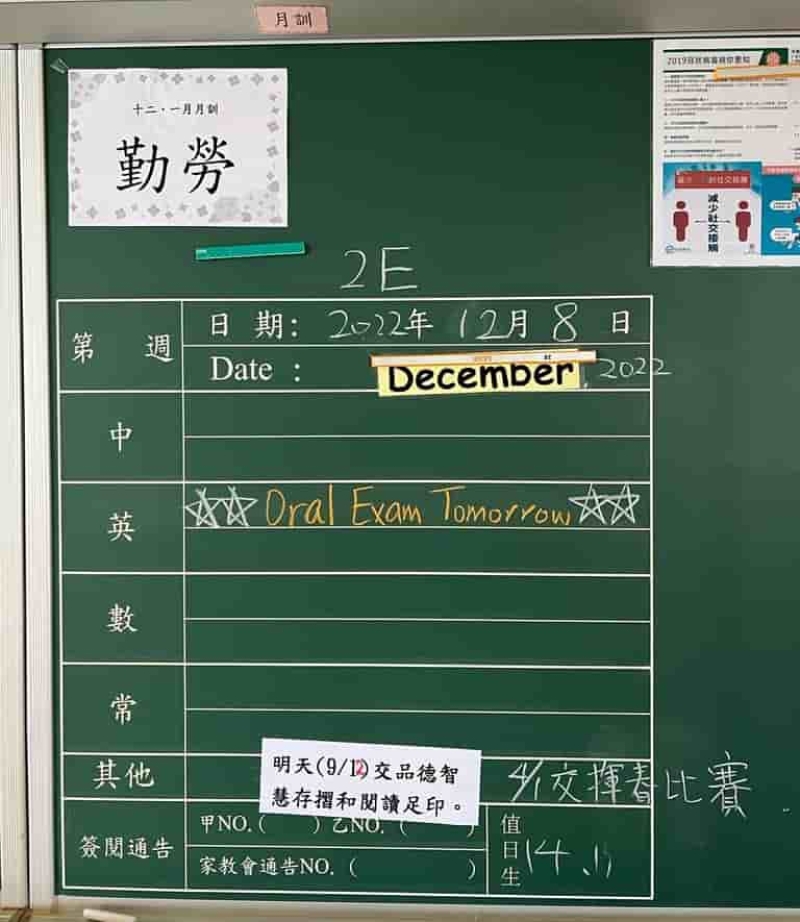 月訓
十二、一月月訓
勤勞
2019冠狀病毒病你要知
減少社交接觸
2E
第 週
日 期: 2022年 12月 8 日
Date : December, 2022
中
英
Oral Exam Tomorrow
數
常
其他
明天(9/12)交品德智
慧存摺和閱讀足印。
4/1交揮春比賽
簽閱通告
甲NO.( ) 乙NO. ( )
家教會通告NO. ( )
值日生
14、11